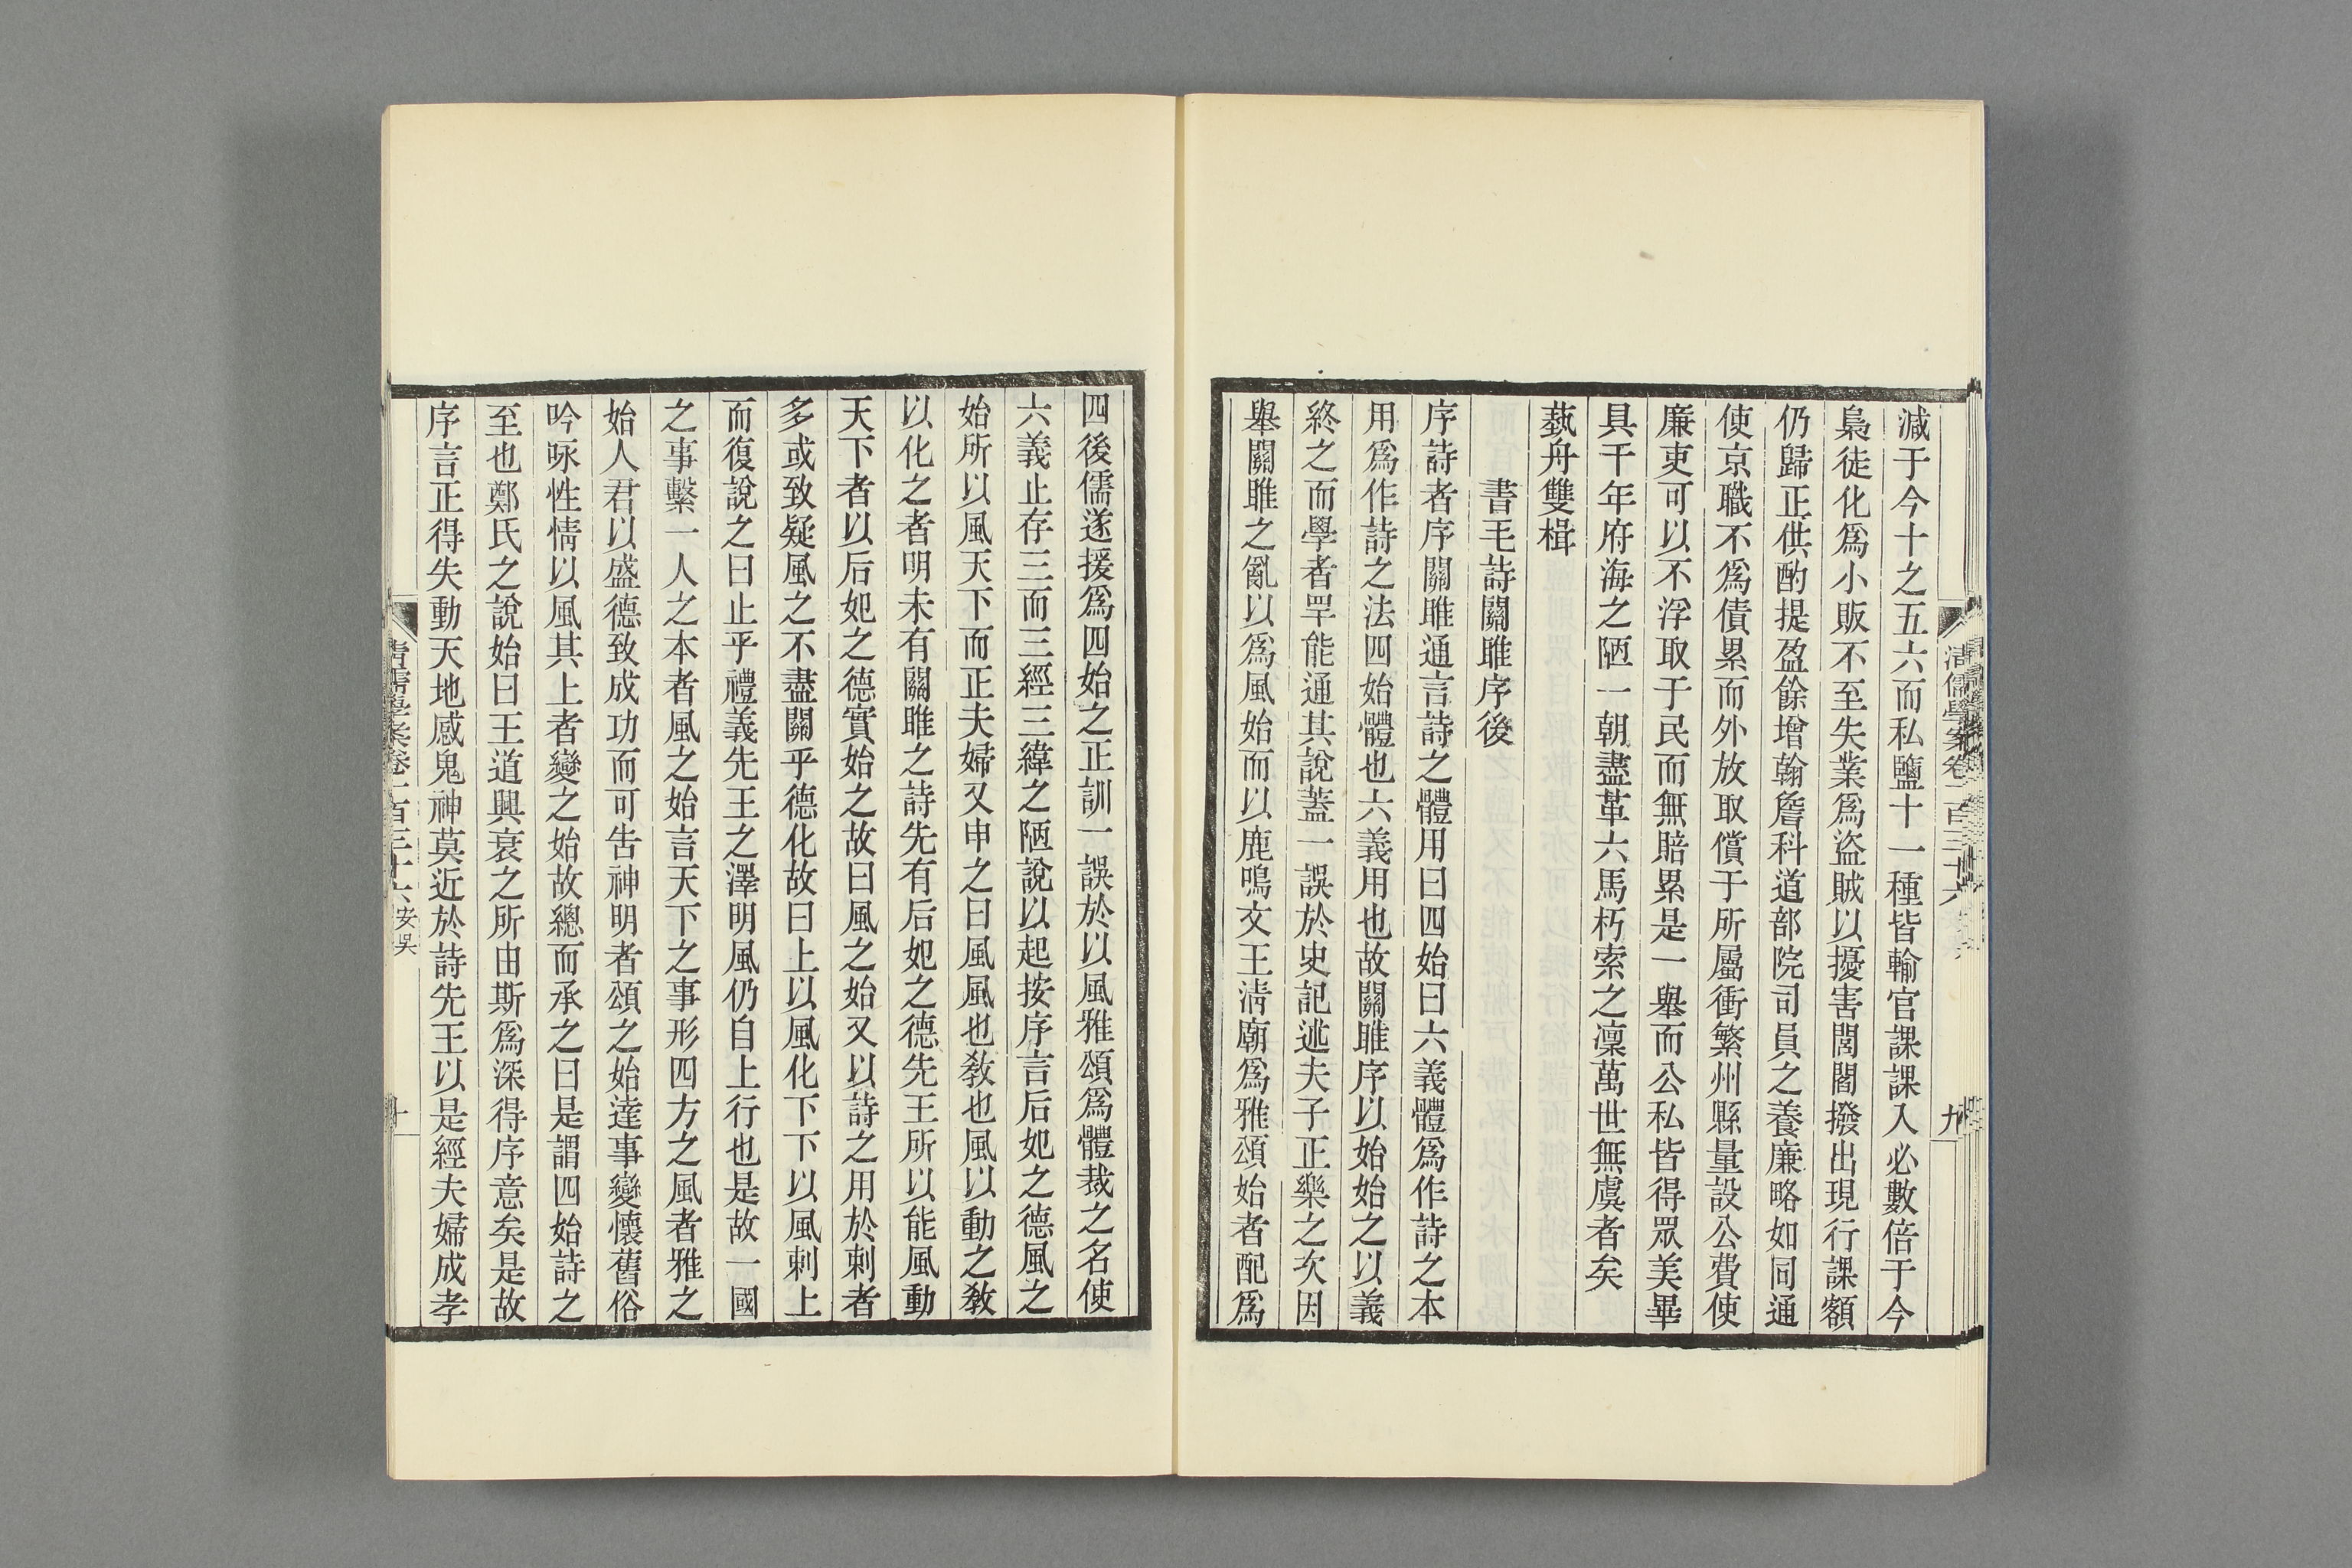 減于今十之五六而私鹽十一種皆輸官課課入必數倍于今
梟徒化爲小販不至失業爲盜賊以擾害閭閻撥出現行課額
仍歸正供酌提盈餘增翰詹科道部院司員之養廉略如同通
使京職不爲債累而外放取償于所屬衝繁州縣量設公費使
廉吏可以不浮取于民而無賠累是一舉而公私皆得眾美畢
具千年府海之陋一朝盡革六馬朽索之凜萬世無虞者矣
藝舟雙楫
書毛詩關雎序後
序詩者序關雎通言詩之體用曰四始曰六義體爲作詩之本
用爲作詩之法四始體也六義用也故關雎序以始始之以義
終之而學者罕能通其說蓋一誤於史記述夫子正樂之次因
舉關雎之亂以爲風始而以鹿鳴文王淸廟爲雅頌始者配爲
四後儒遂援爲四始之正訓一誤於以風雅頌爲體裁之名使
六義止存三而三經三緯之陋說以起按序言后妃之德風之
始所以風天下而正夫婦又申之曰風風也敎也風以動之敎
以化之者明未有關雎之詩先有后妃之德先王所以能風動
天下者以后妃之德實始之故曰風之始又以詩之用於刺者
多或致疑風之不盡關乎德化故曰上以風化下下以風刺上
而復說之曰止乎禮義先王之澤明風仍自上行也是故一國
之事繫一人之本者風之始言天下之事形四方之風者雅之
始人君以盛德致成功而可告神明者頌之始達事變懷舊俗
吟咏性情以風其上者變之始故總而承之曰是謂四始詩之
至也鄭氏之說始曰王道興衰之所由斯爲深得序意矣是故
序言正得失動天地感鬼神莫近於詩先王以是經夫婦成孝
清儒學案卷一百三十六 安吳